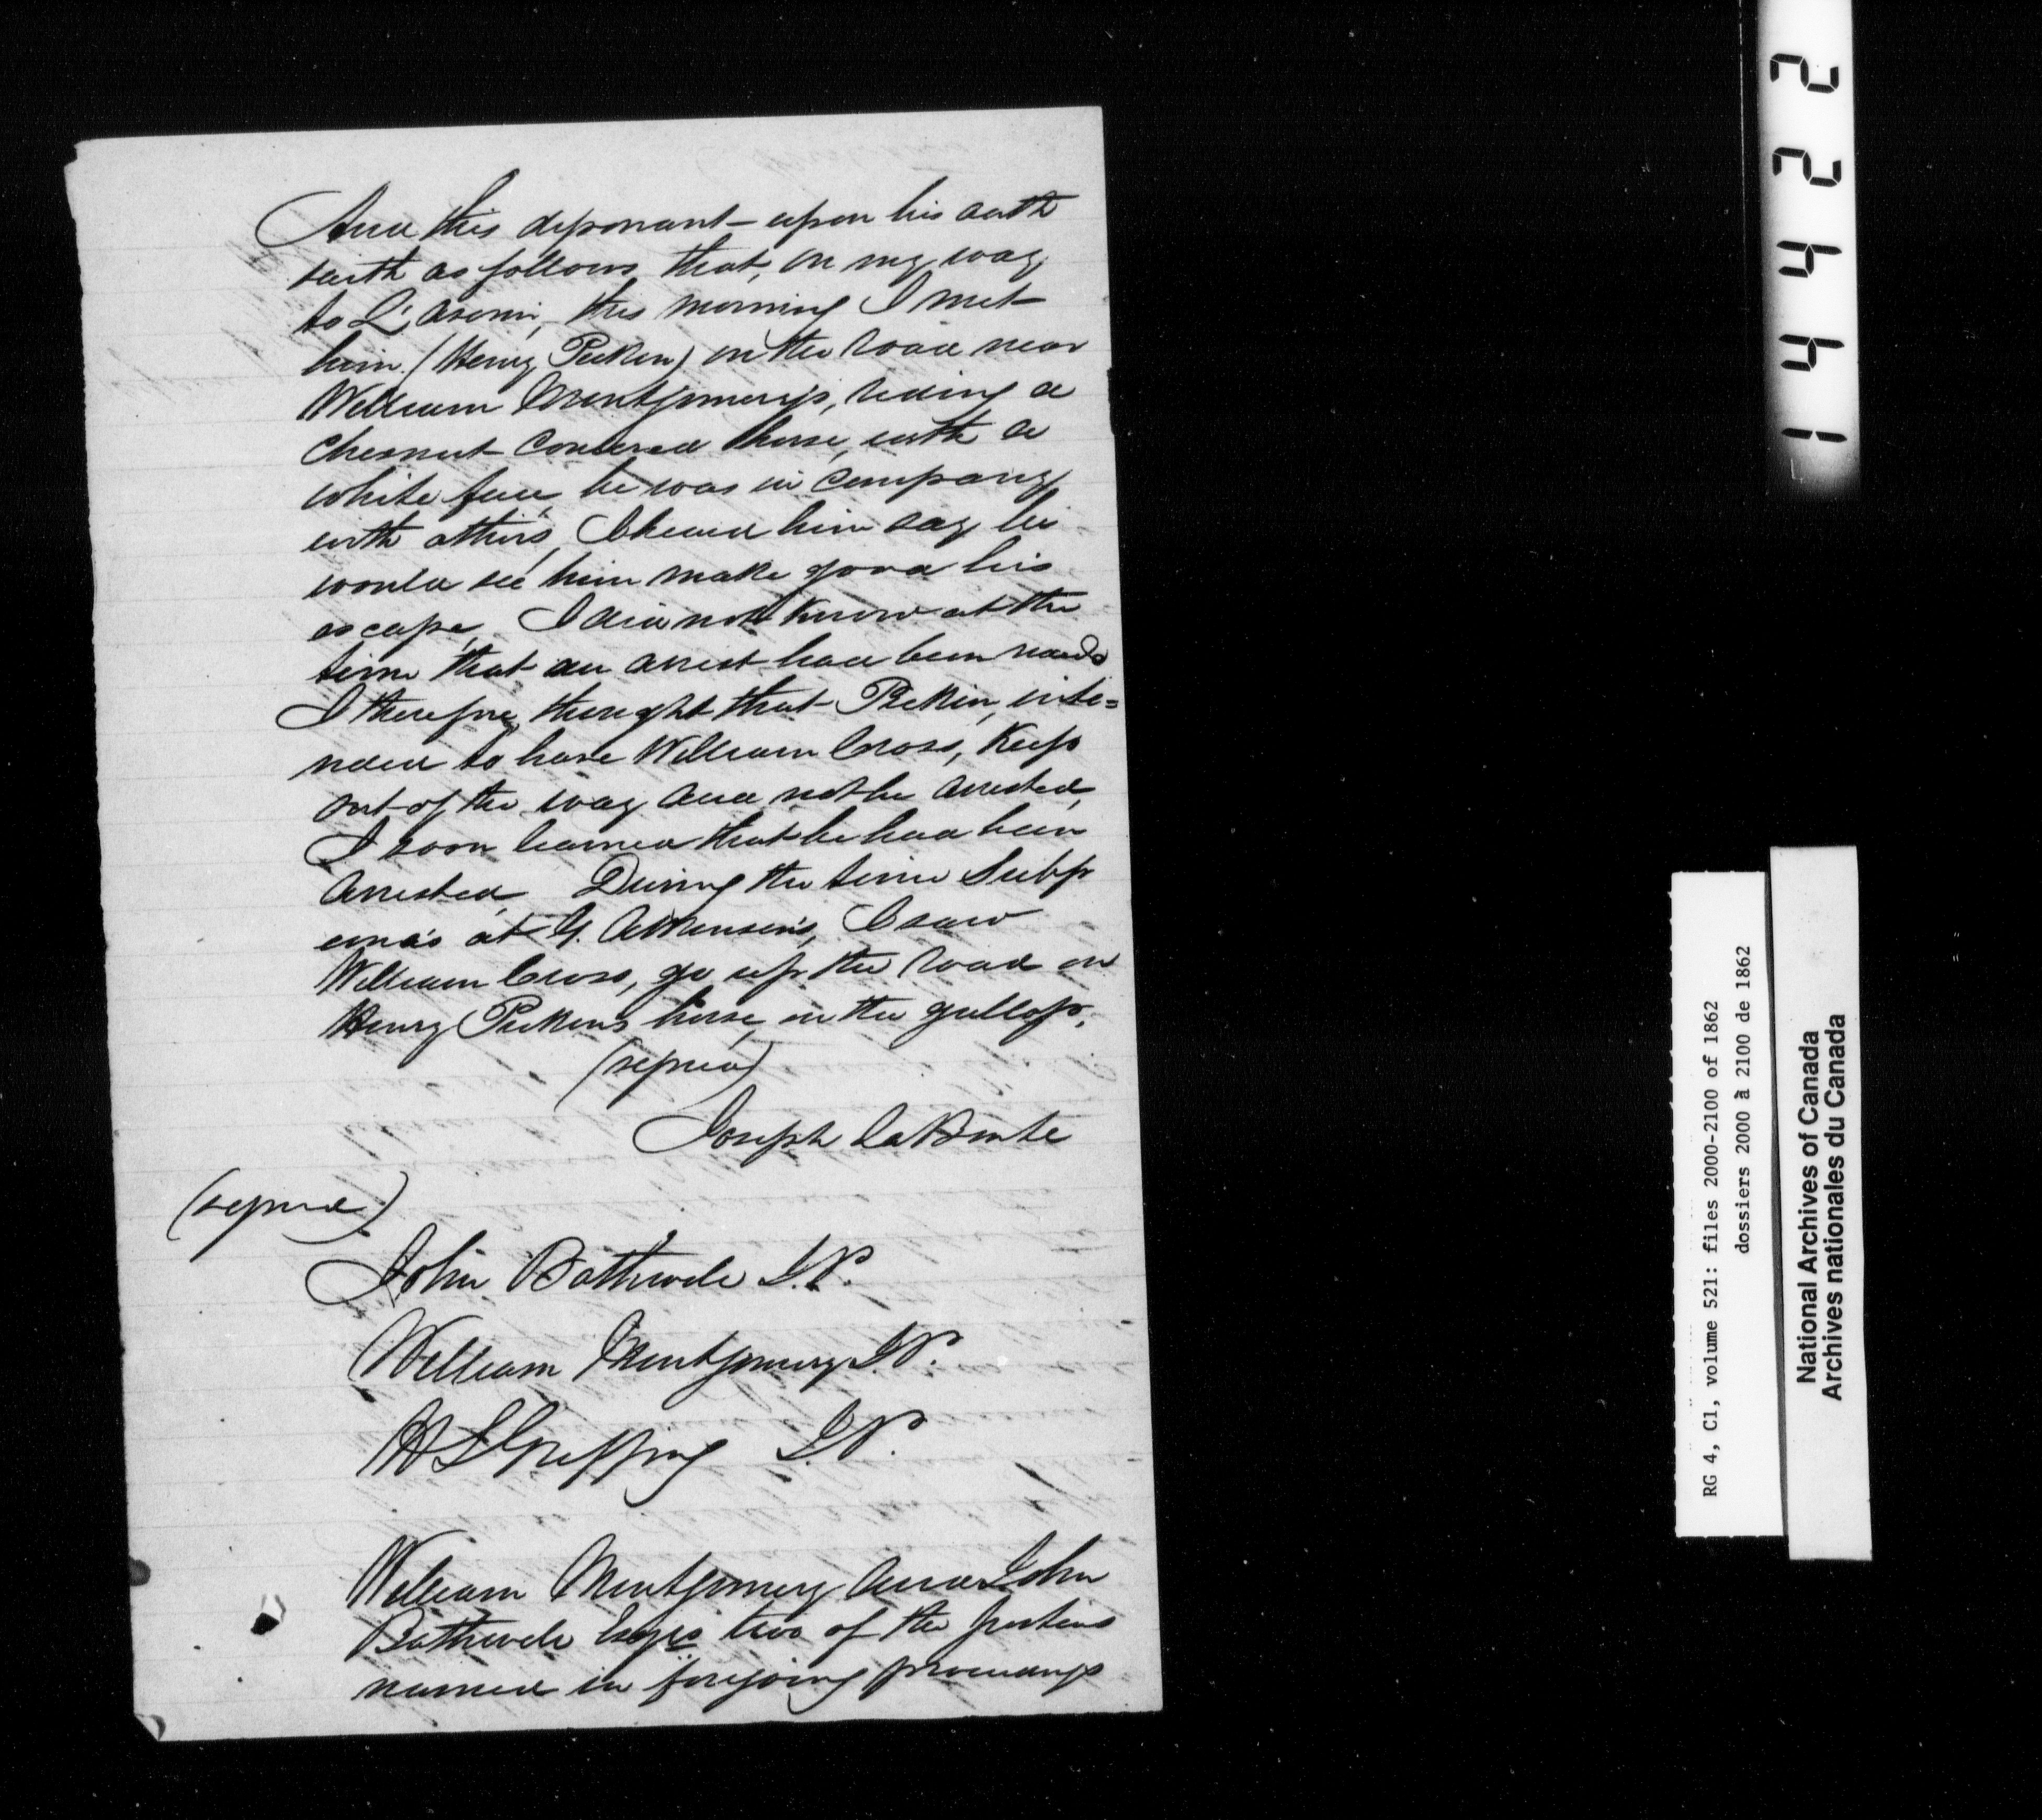 And this deponant upon his oath
saith as follows, that, on my way,
to L' this morning I met
him (Henry Pecken) on the road near
William Montgomery's, riding a
Chesnut Coulered horse, with a
white face, he was in Company
with others, I heard him say he
would see him make good his
escape, I did not know at the
time that an arrest had been made
I therefore, thought that Peckin, inte=
nded to have William Cross, Keep
out of the way and not be arrested,
I soon learned that he had been
Arrested, During the time Subp
ena's at G. Atkinson's, I saw
William Cross, go up the road on
Henry Peckens horse, on the gallop,
(signed)
Joseph LaBonte
(signed)
John Bothwele J.P.
William Montgomery J.P.
H S Griffing J.P.
William Montgomery And John
Bothwele Esqrs two of the Justices
named in foregoing proceedings
14422
RG 4, C1, volume 521: files 2000-2100 of 1862
dossiers 2000 à 2100 de 1862
National Archives of Canada
Archives nationales du Canada